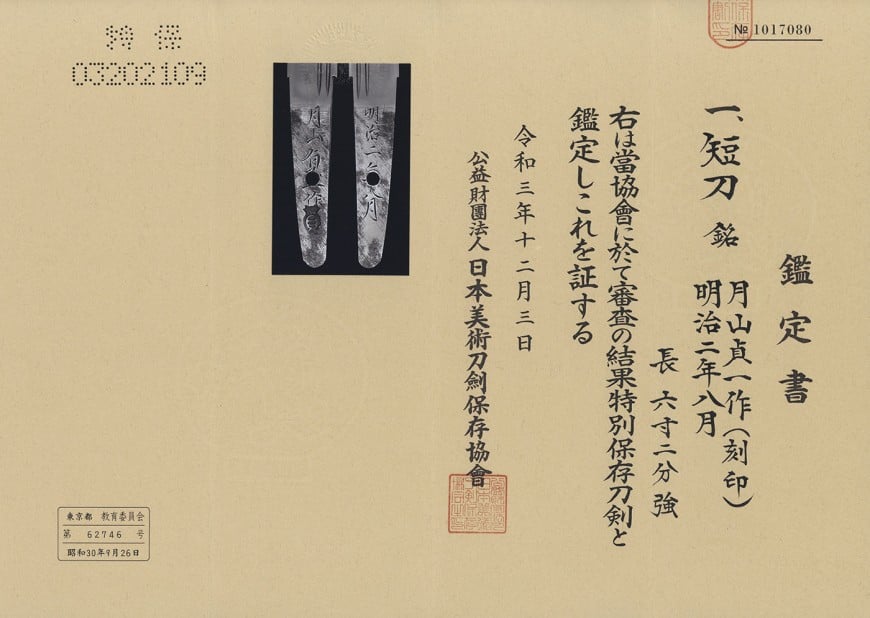 № 1017080
鑑定書
一、短刀 銘 月山貞一作(刻印)
明治二年八月
長 六寸二分強
右は當協會に於て審査の結果特別保存刀剣と
鑑定しこれを証する
令和三年十二月三日
公益財團法人 日本美術刀劍保存協會
明治二年八月
月山貞一作
特 保
03202109
東京都 教育委員会
第 62746 号
昭和30年9月26日